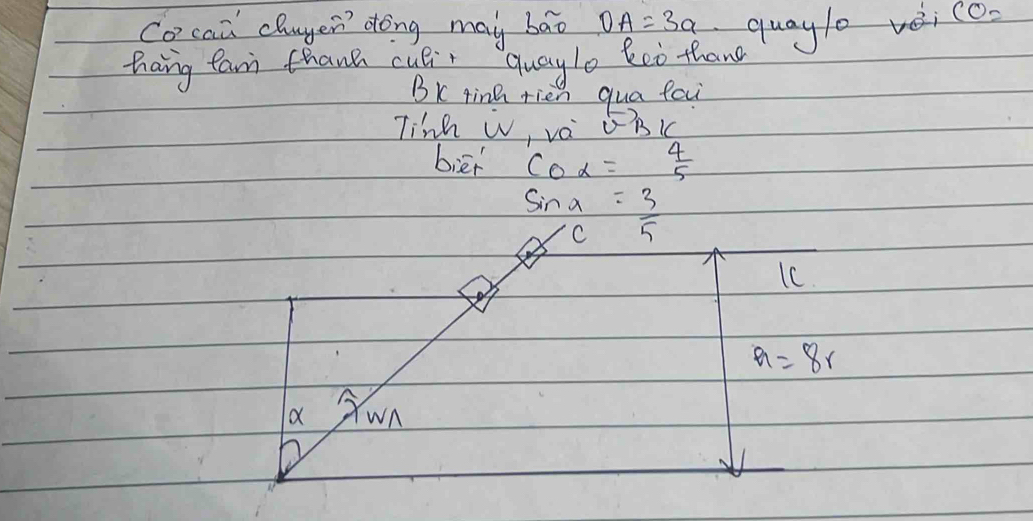 Cơ cấu chuyển động máy bào OA = 3a quay lo với ωo =
hằng làm thanh culit quay lo kéo thanh
BK tịnh tiến qua lại
Tính W, và v BK
biết Co α = 4/5
Sin α = 3/5
C
K
a = 8r
α W1